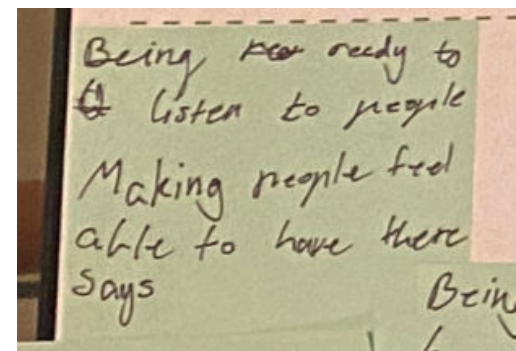 Being ready to
listen to people
Making people feel
able to have there
Says
Bein